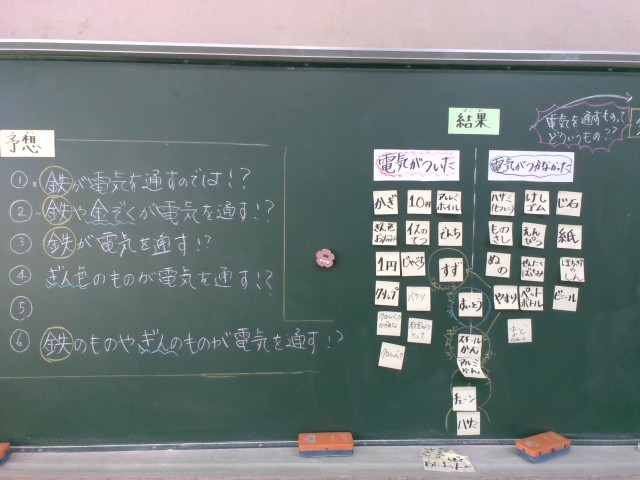 予想
①・鉄が電気を通すのでは!?
②・鉄や金ぞくが電気を通す!?
③ 鉄が電気を通す!?
④ ぎん色のものが電気を通す!?
⑤
⑥ 鉄のものやぎんのものが電気を通す!?
結果
電気を通すものって
どういうもの??
電気がついた
電気がつかなかった
かぎ
10円
アルミ
ホイル
イスの
てつ
でんち
1円
じゃぐち
すず
クリップ
ハサミ
けし
ゴム
じ石
もの
さし
えん
ぴつ
紙
ぬの
せんたく
ばさみ
やすり
ペット
ボトル
ビニール
まど
スチール
かん
アルミ
かん
チェーン
ハサミ